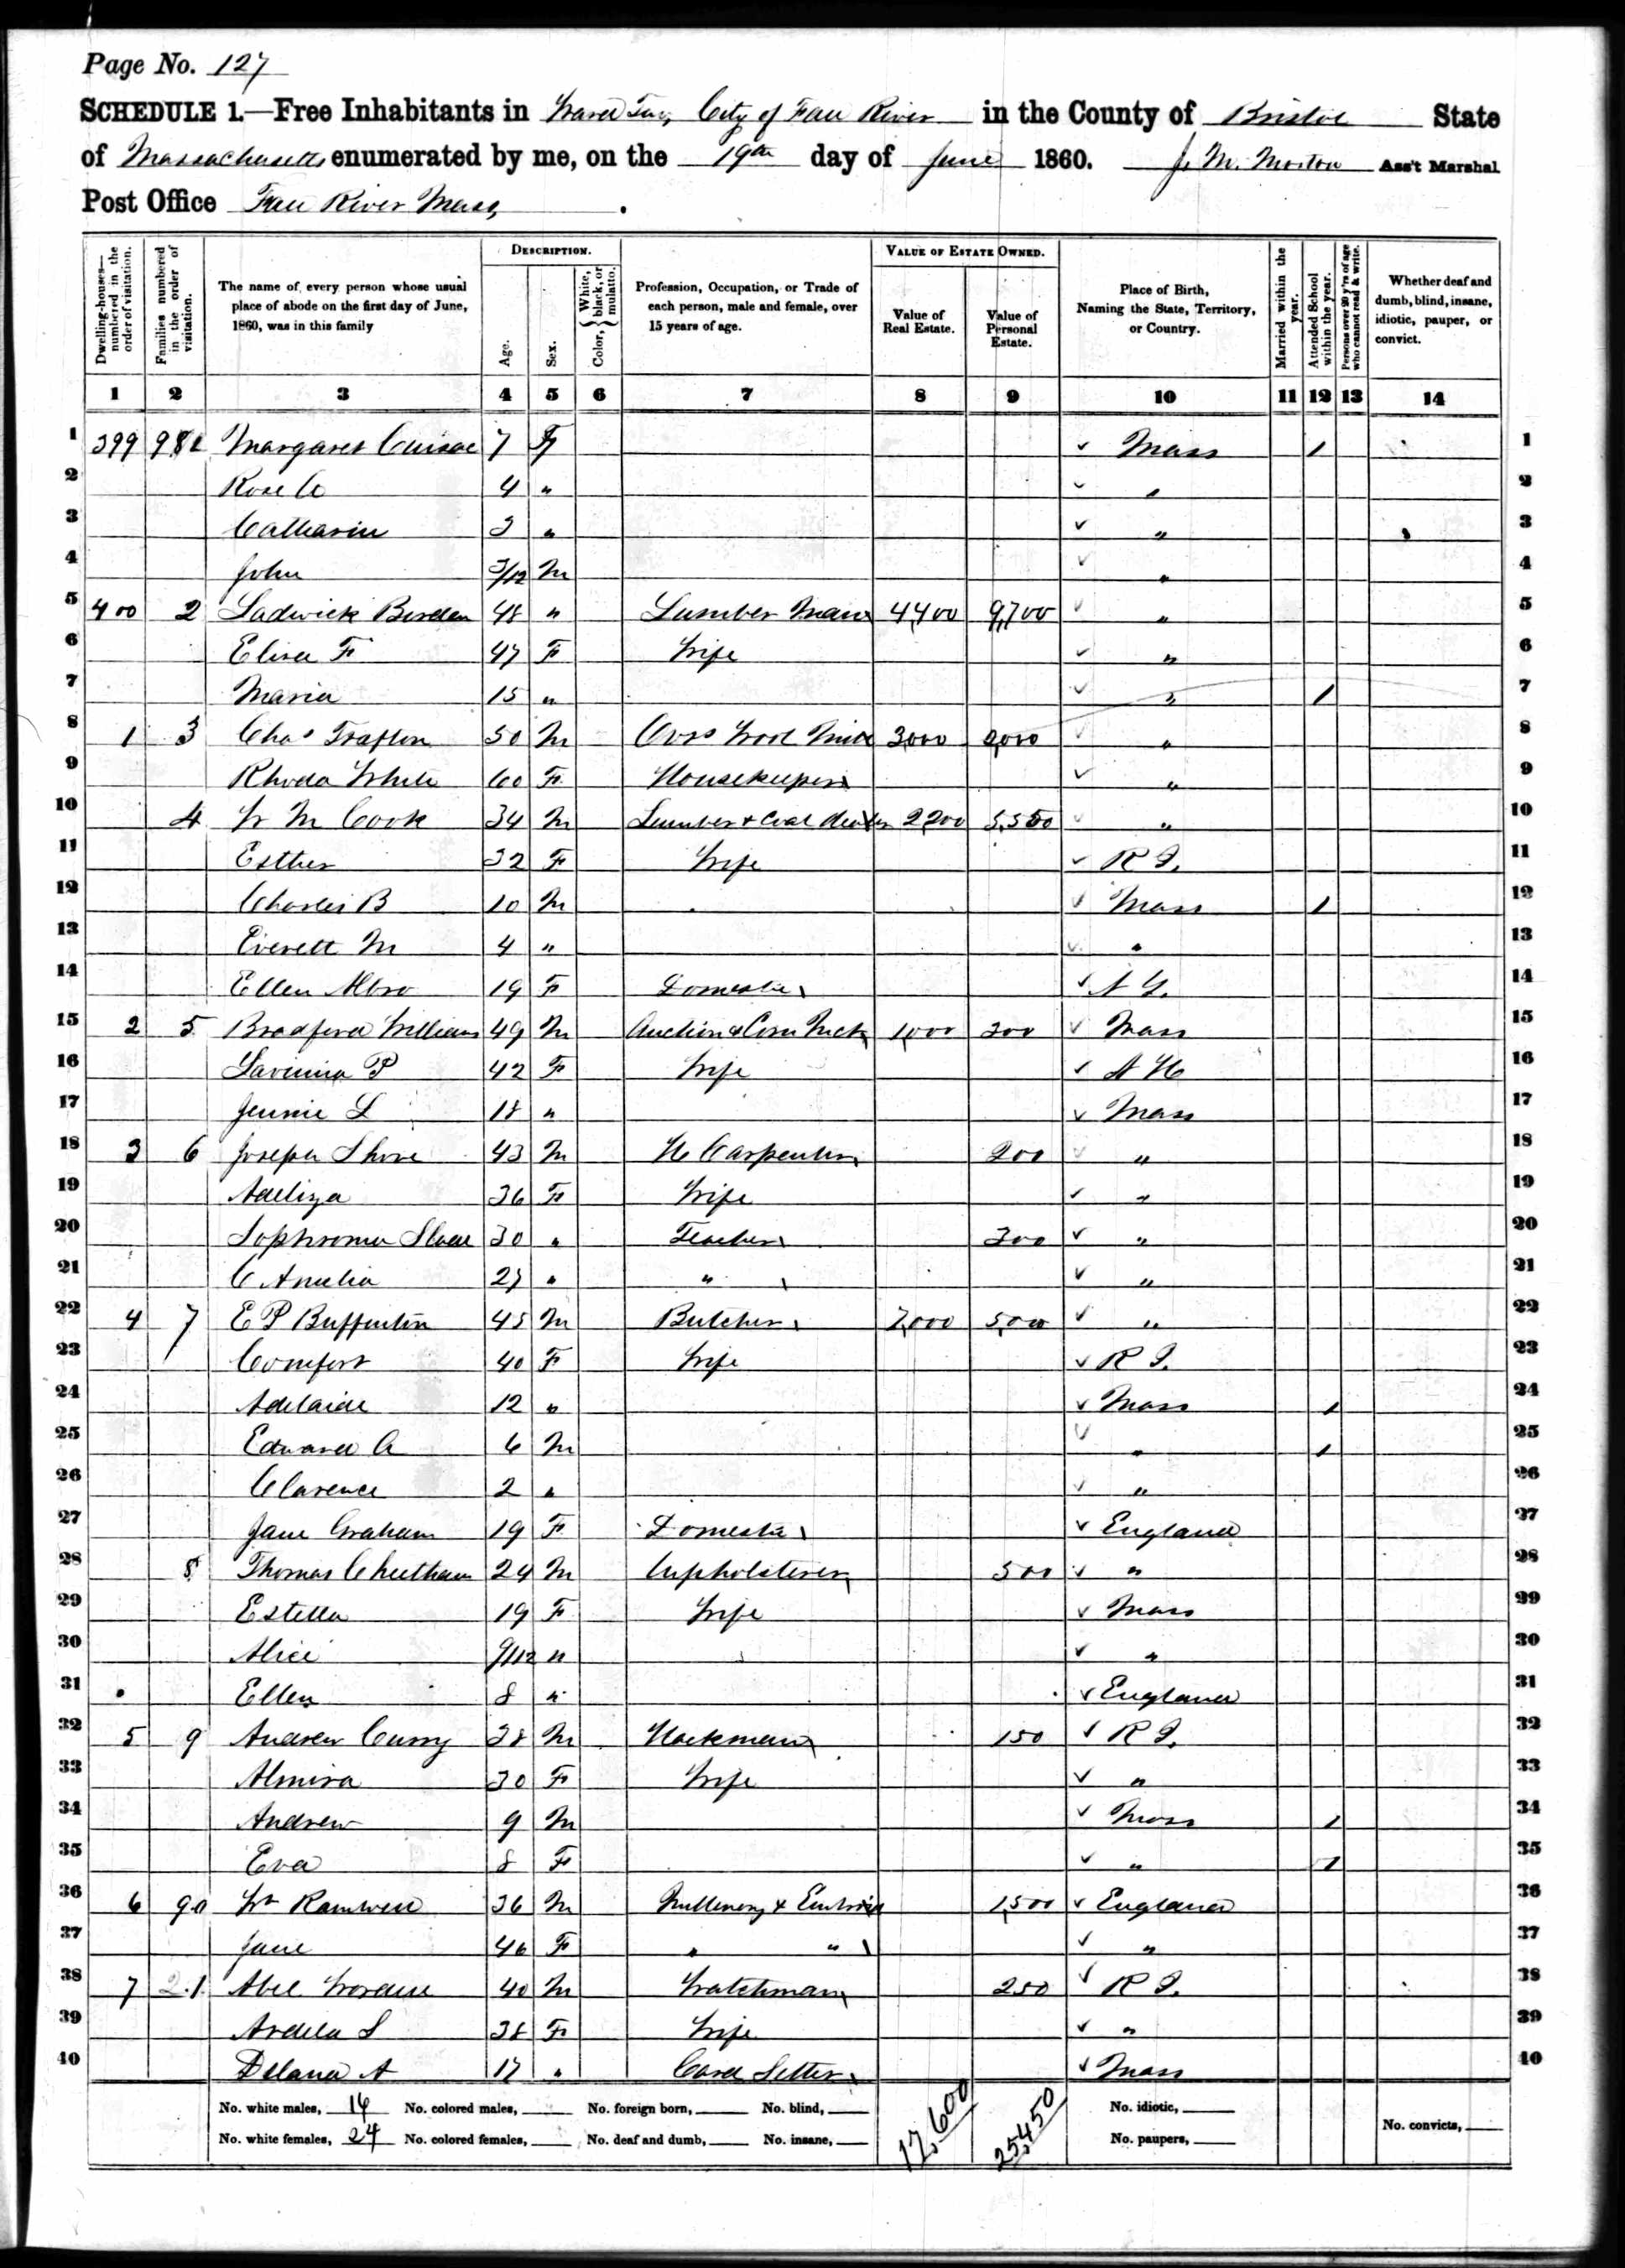 Page No. 127
SCHEDULE 1.—Free Inhabitants in Ward Two, City of Fall River in the County of Bristol State
of Massachusetts enumerated by me, on the 19th day of June 1860. J. M. Morton Ass't Marshal
Post Office Fall River Mass,
Dwelling-houses—numbered in the order of visitation.
Families numbered in the order of visitation.
The name of every person whose usual place of abode on the first day of June, 1860, was in this family
DESCRIPTION.
Age.
Sex.
Color, { White, black, or mulatto.
Profession, Occupation, or Trade of each person, male and female, over 15 years of age.
VALUE OF ESTATE OWNED.
Value of Real Estate.
Value of Personal Estate.
Place of Birth, Naming the State, Territory, or Country.
Married within the year.
Attended School within the year.
Persons over 20 y'rs of age who cannot read & write.
Whether deaf and dumb, blind, insane, idiotic, pauper, or convict.
1 2 3 4 5 6 7 8 9 10 11 12 13 14
1 399 981 Margaret 7 F ✓ Mass / 1
2 Rose A 4 " ✓ " 2
3 Catharine " ✓ " 3
4 John 3/12 M ✓ " 4
5 400 2 Ladwick Borden 48 " Lumber Man 4400 9,700 ✓ " 5
6 Eliza F 47 F Wife ✓ " 6
7 Maria 15 " ✓ " / 7
8 1 3 Chas Trafton 50 M 3,000 2,000 ✓ " 8
9 Rhoda White 60 F Housekeeper ✓ " 9
10 4 W M Cook 34 M Lumber & Coal dealer 2200 5,550 ✓ " 10
11 Esther 32 F Wife ✓ R I. 11
12 Charles B 10 M ✓ Mass / 12
13 Everett M 4 " ✓ " 13
14 Ellen Albro 19 F Domestic ✓ N Y. 14
15 2 5 Bradford Williams 49 M Auction & Com Mch 1,000 300 ✓ Mass 15
16 Lavinia P 42 F Wife ✓ N H 16
17 Jennie L 18 " ✓ Mass 17
18 3 6 Joseph Shove 43 M H Carpenter 200 ✓ " 18
19 Adeliza 36 F Wife ✓ " 19
20 Sophronia 30 " Teacher 300 ✓ " 20
21 C Amelia 27 " " ✓ " 21
22 4 7 E P Buffinton 45 M Butcher 7,000 5,000 ✓ " 22
23 Comfort 40 F Wife ✓ R I. 23
24 Adelaide 12 " ✓ Mass / 24
25 Edward A 6 M ✓ " / 25
26 Clarence 2 " ✓ " 26
27 Jane Graham 19 F Domestic ✓ England 27
28 8 Thomas Cheetham 24 M Upholsterer 500 ✓ " 28
29 Estella 19 F Wife ✓ Mass 29
30 Alice 9/12 " ✓ " 30
31 Ellen 8 " ✓ England 31
32 5 9 Andrew Curry 38 M Hackman 150 ✓ R I. 32
33 Almira 30 F Wife ✓ " 33
34 Andrew 9 M ✓ Mass / 34
35 Eva 8 F ✓ " / 35
36 6 90 Wm Ramwell 36 M Millinery & 1,500 ✓ England 36
37 Jane 46 F " " ✓ " 37
38 7 1 Abel 40 M Watchman 250 ✓ R I. 38
39 Ardela S 38 F Wife ✓ " 39
40 Delana A 17 " Card Setter ✓ Mass 40
No. white males, 16 No. colored males, No. foreign born, No. blind, 17,600 25,450 No. idiotic,
No. white females, 24 No. colored females, No. deaf and dumb, No. insane, No. paupers, No. convicts,